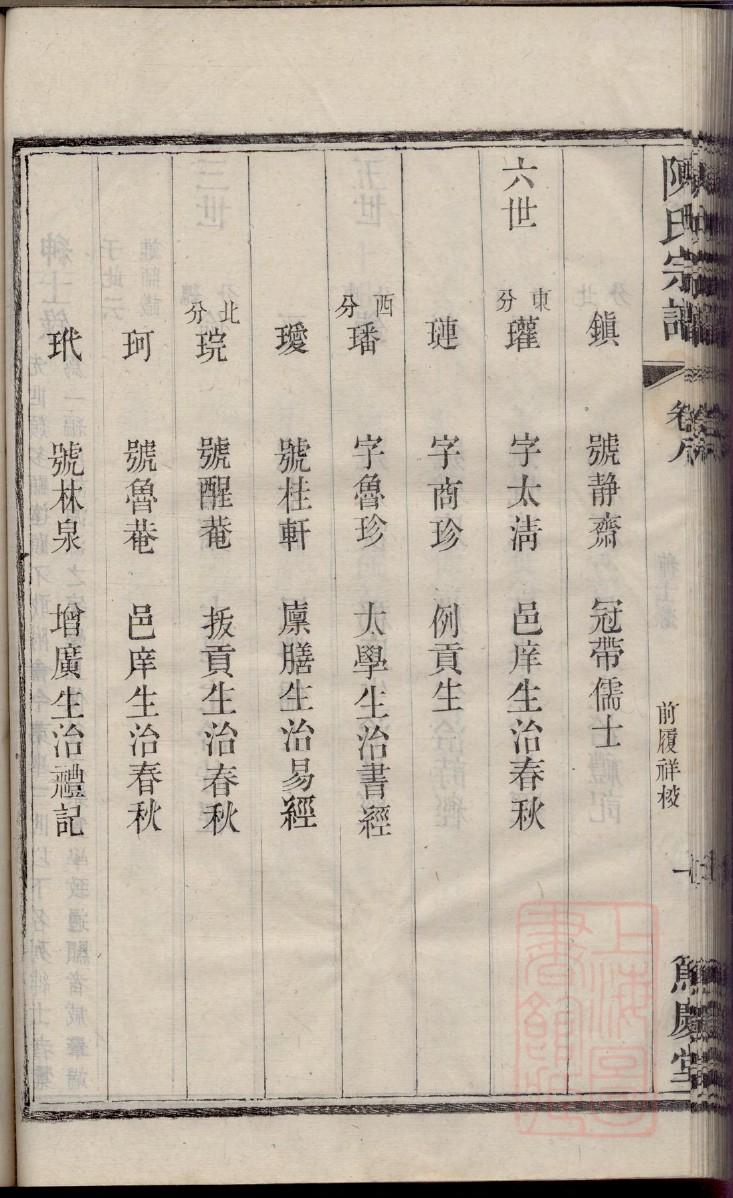 陳氏宗譜 卷八 前履祥校 一 篤慶堂
鎮 號靜齋 冠帶儒士
六世 東分 瓘 字太淸 邑庠生治春秋
璉 字商珍 例貢生
西分 璠 字魯珍 太學生治書經
璦 號桂軒 廩膳生治易經
北分 琓 號醒菴 拔貢生治春秋
珂 號魯菴 邑庠生治春秋
玳 號林泉 增廣生治禮記
上海圖書館藏